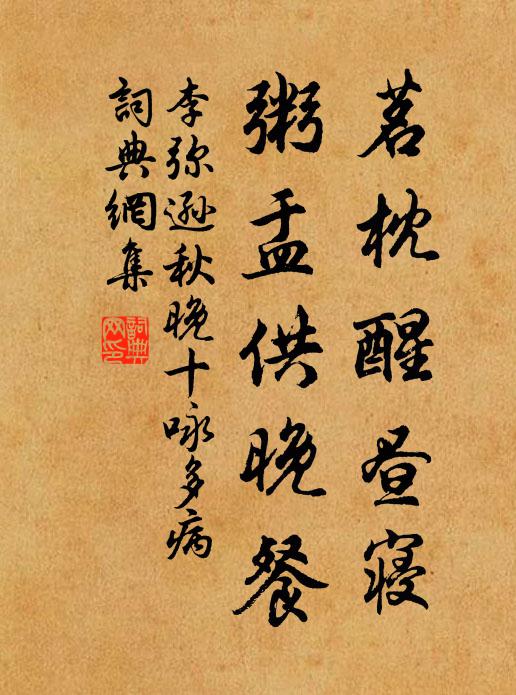 茗枕醒昼寝
粥盂供晚餐
李弥逊秋晚十咏多病
詞典網集
詞典网印